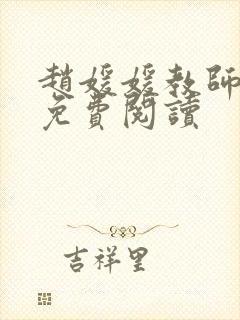 趙媛媛教師
免費閱讀
吉祥里